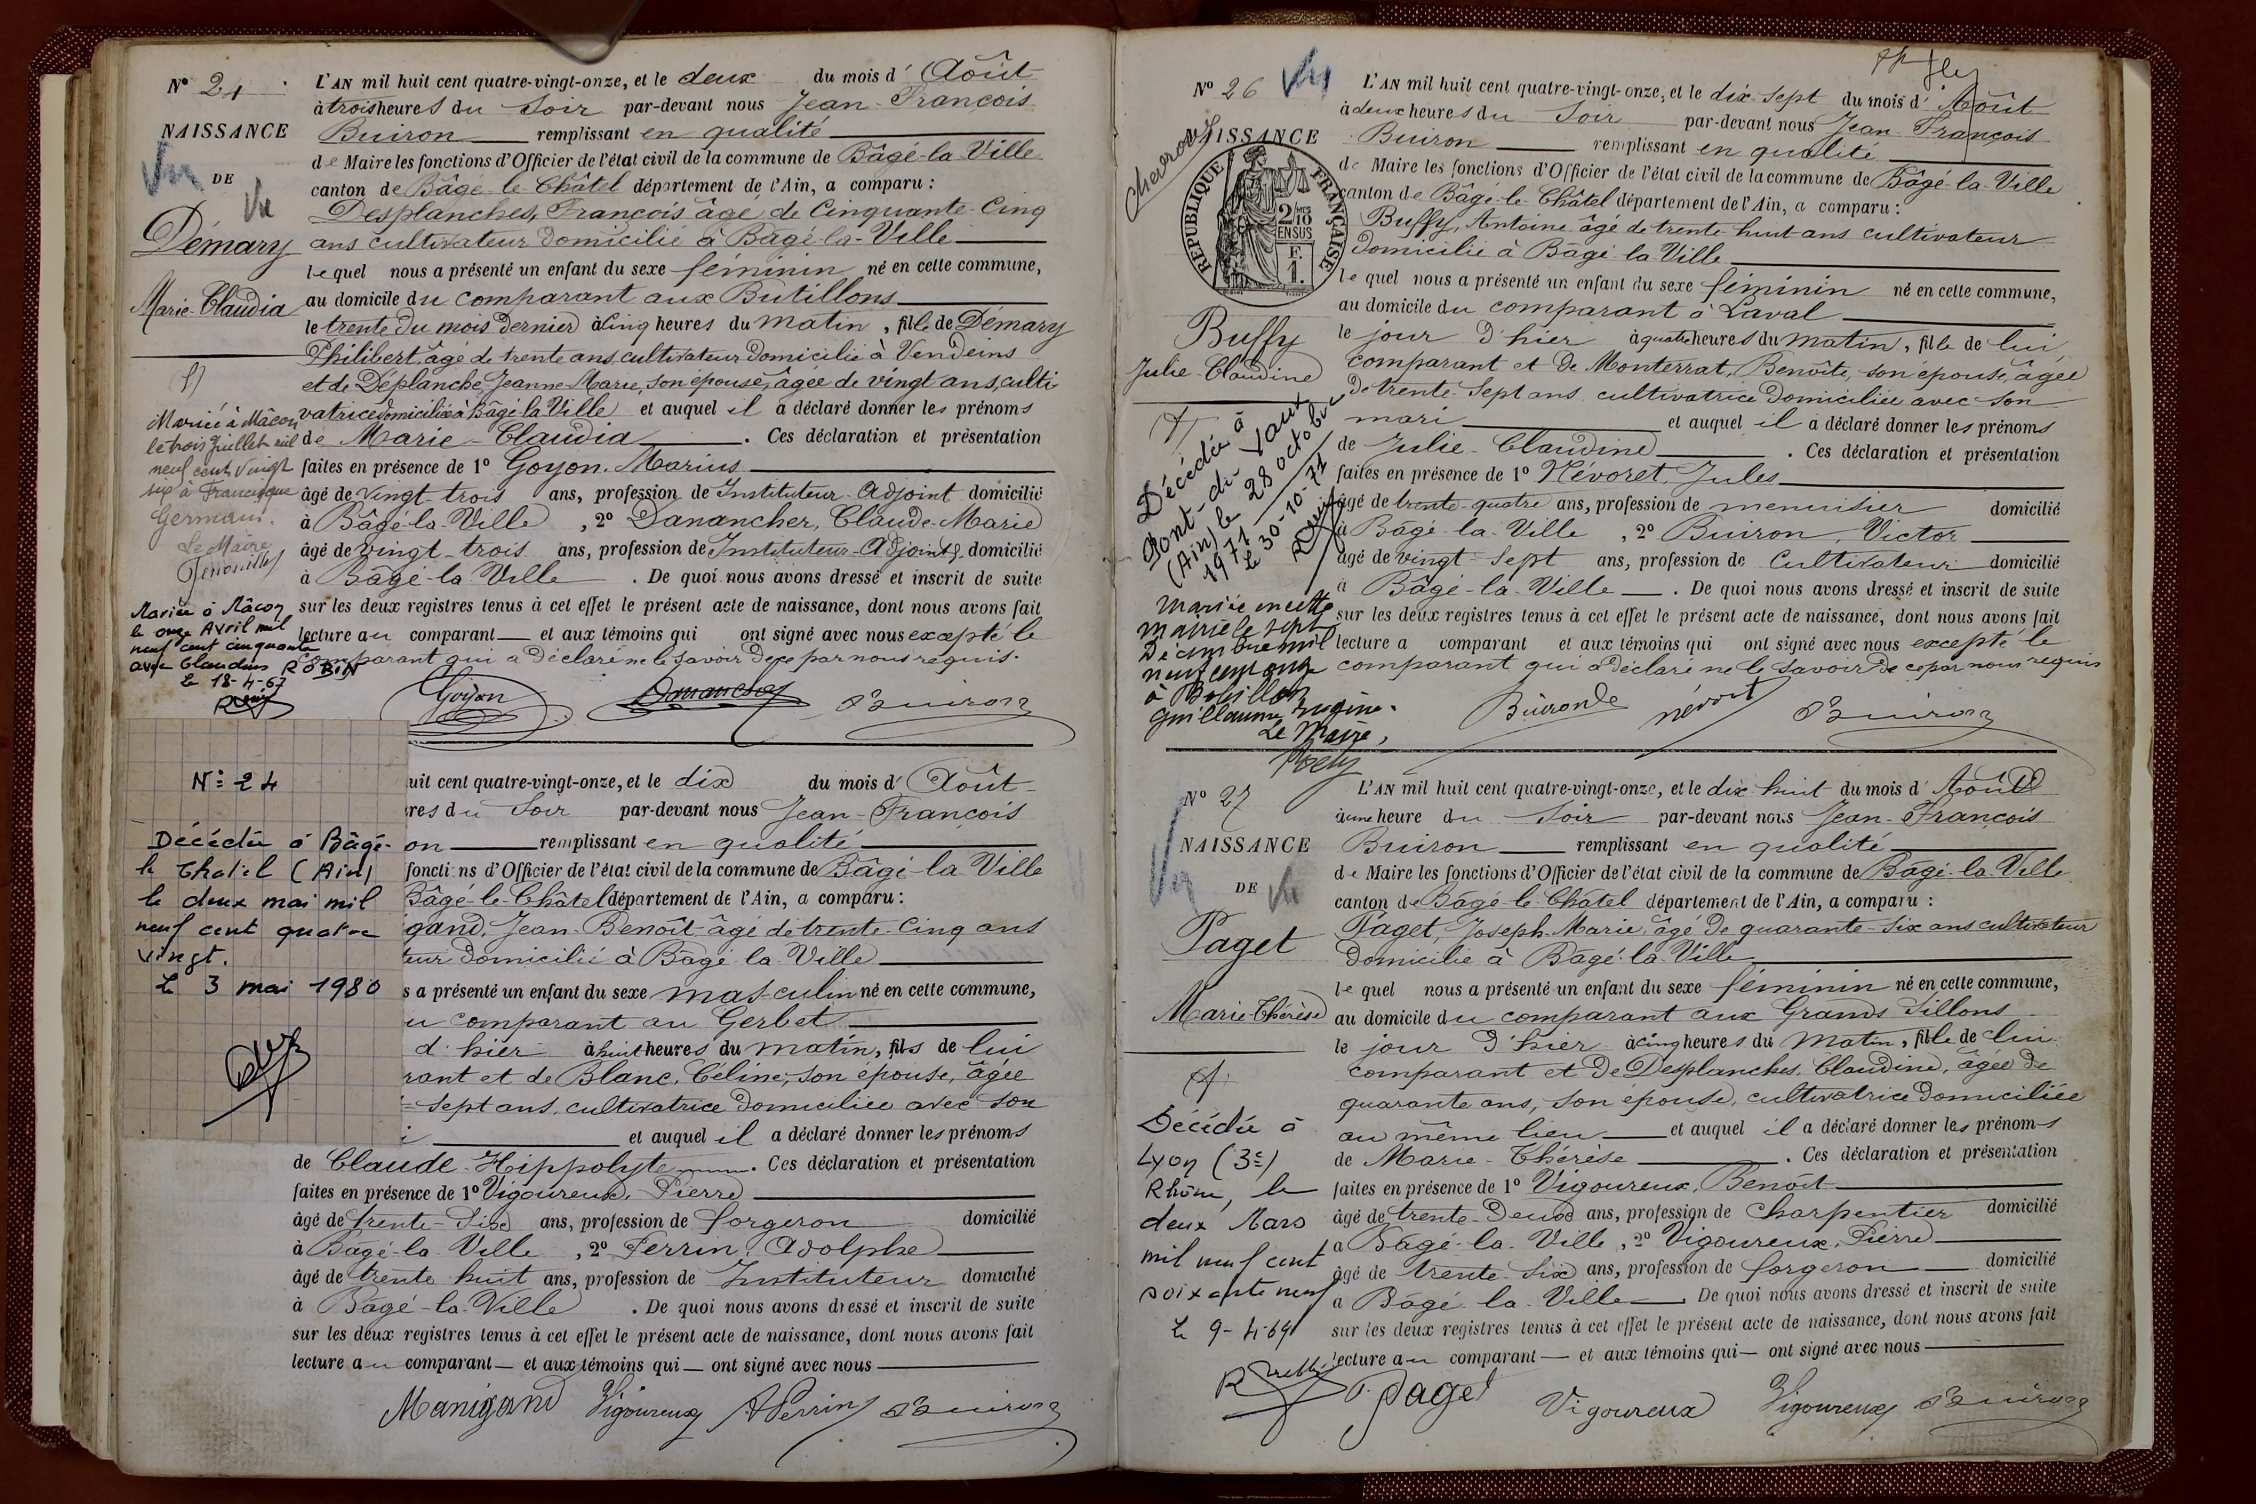 N° 24
NAISSANCE
DE
Vu
Vu
Démary
Marie-Claudia
Mariée à Mâcon
le trois Juillet mil
neuf cent vingt
six à Francisque
Germain.
Le Maire
Mariée à Mâcon
le onze Avril mil
neuf cent cinquante
avec Claudius ROBIN
Le 18-4-67
L'AN mil huit cent quatre-vingt-onze, et le deux du mois d'Août
à trois heures du Soir par-devant nous Jean-François
Buiron remplissant en qualité
de Maire les fonctions d'Officier de l'état civil de la commune de Bâgé-la-Ville
canton de Bâgé-le-Châtel département de l'Ain, a comparu :
Desplanches, François âgé de Cinquante-Cinq
ans cultivateur domicilié à Bâgé-la-Ville
lequel nous a présenté un enfant du sexe féminin né en cette commune,
au domicile du comparant aux Butillons
le trente du mois dernier à cinq heures du matin, fille de Démary
Philibert, âgé de trente ans, cultivateur domicilié à Vendeins
et de Déplanche, Jeanne-Marie, son épouse, âgée de vingt ans, culti-
vatrice domiciliée à Bâgé la Ville et auquel il a déclaré donner les prénoms
de Marie-Claudia. Ces déclaration et présentation
faites en présence de 1° Goyon, Marius
âgé de vingt-trois ans, profession de Instituteur-Adjoint domicilié
à Bâgé-la-Ville, 2° Danancher, Claude-Marie
âgé de vingt-trois ans, profession de Instituteur-Adjoint, domicilié
à Bâgé-la-Ville. De quoi nous avons dressé et inscrit de suite
sur les deux registres tenus à cet effet le présent acte de naissance, dont nous avons fait
lecture au comparant et aux témoins qui ont signé avec nous excepté le
comparant qui a déclaré ne le savoir de ce par nous requis.
Goyon Danancher Buiron
N° 24
Décédée à Bâgé-
le Chatel (Ain)
le deux mai mil
neuf cent quatre
vingt.
Le 3 mai 1980
uit cent quatre-vingt-onze, et le dix du mois d'Août
res du Soir par-devant nous Jean-François
on remplissant en qualité
fonctions d'Officier de l'état civil de la commune de Bâgé-la-Ville
Bâgé-le-Châtel département de l'Ain, a comparu :
gand, Jean-Benoît âgé de trente-Cinq ans
teur domicilié à Bâgé-la-Ville
s a présenté un enfant du sexe masculin né en cette commune,
u comparant au Gerbet
d'hier à huit heures du matin, fils de lui
rant et de Blanc, Céline, son épouse, âgée
-sept ans, cultivatrice domiciliée avec son
i et auquel il a déclaré donner les prénoms
de Claude-Hippolyte. Ces déclaration et présentation
faites en présence de 1° Vigoureux, Pierre
âgé de trente-Six ans, profession de forgeron domicilié
à Bâgé-la-Ville, 2° Perrin, Adolphe
âgé de trente huit ans, profession de Instituteur domicilié
à Bâgé-la-Ville. De quoi nous avons dressé et inscrit de suite
sur les deux registres tenus à cet effet le présent acte de naissance, dont nous avons fait
lecture au comparant et aux témoins qui ont signé avec nous
Manigand Vigoureux APerrin Buiron
N° 26
Vu
NAISSANCE
RÉPUBLIQUE FRANÇAISE
2/10
EN SUS
F.
1.
Buffy
Julie-Claudine
Décédée à
Pont-de-Vaux
(Ain) le 28 octobre
1971
Le 30-10-71
Mariée en cette
mairie le sept
Décembre mil
neuf cent onze
à Bouillon
Guillaume Eugène.
Le Maire,
L'AN mil huit cent quatre-vingt-onze, et le dix-sept du mois d'Août
à deux heures du Soir par-devant nous Jean-François
Buiron remplissant en qualité
de Maire les fonctions d'Officier de l'état civil de la commune de Bâgé-la-Ville
canton de Bâgé-le-Châtel département de l'Ain, a comparu :
Buffy, Antoine âgé de trente-huit ans cultivateur
domicilié à Bâgé-la-Ville
lequel nous a présenté un enfant du sexe féminin né en cette commune,
au domicile du comparant à Laval
le jour d'hier à quatre heures du matin, fille de lui
comparant et de Monterrat, Benoîte, son épouse, âgée
de trente-Sept ans cultivatrice domiciliée avec son
mari et auquel il a déclaré donner les prénoms
de Julie-Claudine. Ces déclaration et présentation
faites en présence de 1° Névoret, Jules
âgé de trente-quatre ans, profession de menuisier domicilié
à Bâgé-la-Ville, 2° Buiron, Victor
âgé de vingt-sept ans, profession de Cultivateur domicilié
à Bâgé-la-Ville. De quoi nous avons dressé et inscrit de suite
sur les deux registres tenus à cet effet le présent acte de naissance, dont nous avons fait
lecture a comparant et aux témoins qui ont signé avec nous excepté le
comparant qui a déclaré ne le savoir de ce par nous requis
Buiron Névoret Buiron
N° 27
NAISSANCE
DE
Vu
Vu
Paget
Marie-Thérèse
Décédée à
Lyon (3e)
Rhône, le
deux Mars
mil neuf cent
soixante neuf
Le 9-4-69
L'AN mil huit cent quatre-vingt-onze, et le dix-huit du mois d'Août
à une heure du Soir par-devant nous Jean-François
Buiron remplissant en qualité
de Maire les fonctions d'Officier de l'état civil de la commune de Bâgé-la-Ville
canton de Bâgé-le-Châtel département de l'Ain, a comparu :
Paget, Joseph-Marie, âgé de quarante-six ans cultivateur
domicilié à Bâgé-la-Ville
lequel nous a présenté un enfant du sexe féminin né en cette commune,
au domicile du comparant aux Grands Sillons
le jour d'hier à cinq heures du Matin, fille de lui
comparant et de Desplanches, Claudine, âgée de
quarante ans, son épouse, cultivatrice domiciliée
au même lieu et auquel il a déclaré donner les prénoms
de Marie-Thérèse. Ces déclaration et présentation
faites en présence de 1° Vigoureux, Benoît
âgé de trente-Deux ans, profession de Charpentier domicilié
à Bâgé-la-Ville, 2° Vigoureux, Pierre
âgé de trente-six ans, profession de forgeron domicilié
à Bâgé-la-Ville. De quoi nous avons dressé et inscrit de suite
sur les deux registres tenus à cet effet le présent acte de naissance, dont nous avons fait
lecture au comparant et aux témoins qui ont signé avec nous
Paget Vigoureux Vigoureux Buiron